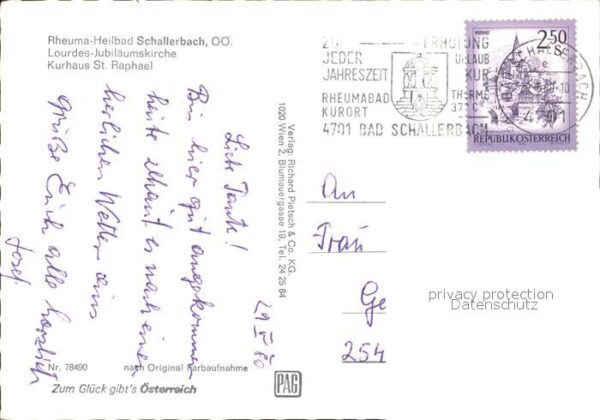 Rheuma-Heilbad Schallerbach, OÖ.
Lourdes-Jubiläumskirche
Kurhaus St. Raphael
Liebe Tante!
Bin hier gut angekommen
heute schaut es nach einem
herrlichen Wetter aus
Grüße Euch alle herzlich
Josef
29 80
Nr. 78490
nach Original Farbaufnahme
Zum Glück gibt's Österreich
Verlag: Richard Pietsch & Co. KG.
1020 Wien 2, Blumauergasse 19, Tel. 24 25 84
PAG
ZU ERHOLUNG
JEDER URLAUB
JAHRESZEIT KUR
RHEUMABAD THERME
KURORT 37°C
4701 BAD SCHALLERBACH
MURAU
2.50
S
REPUBLIK ÖSTERREICH
SCHALLERBACH
4701
An
Frau
Ge
254
privacy protection
Datenschutz